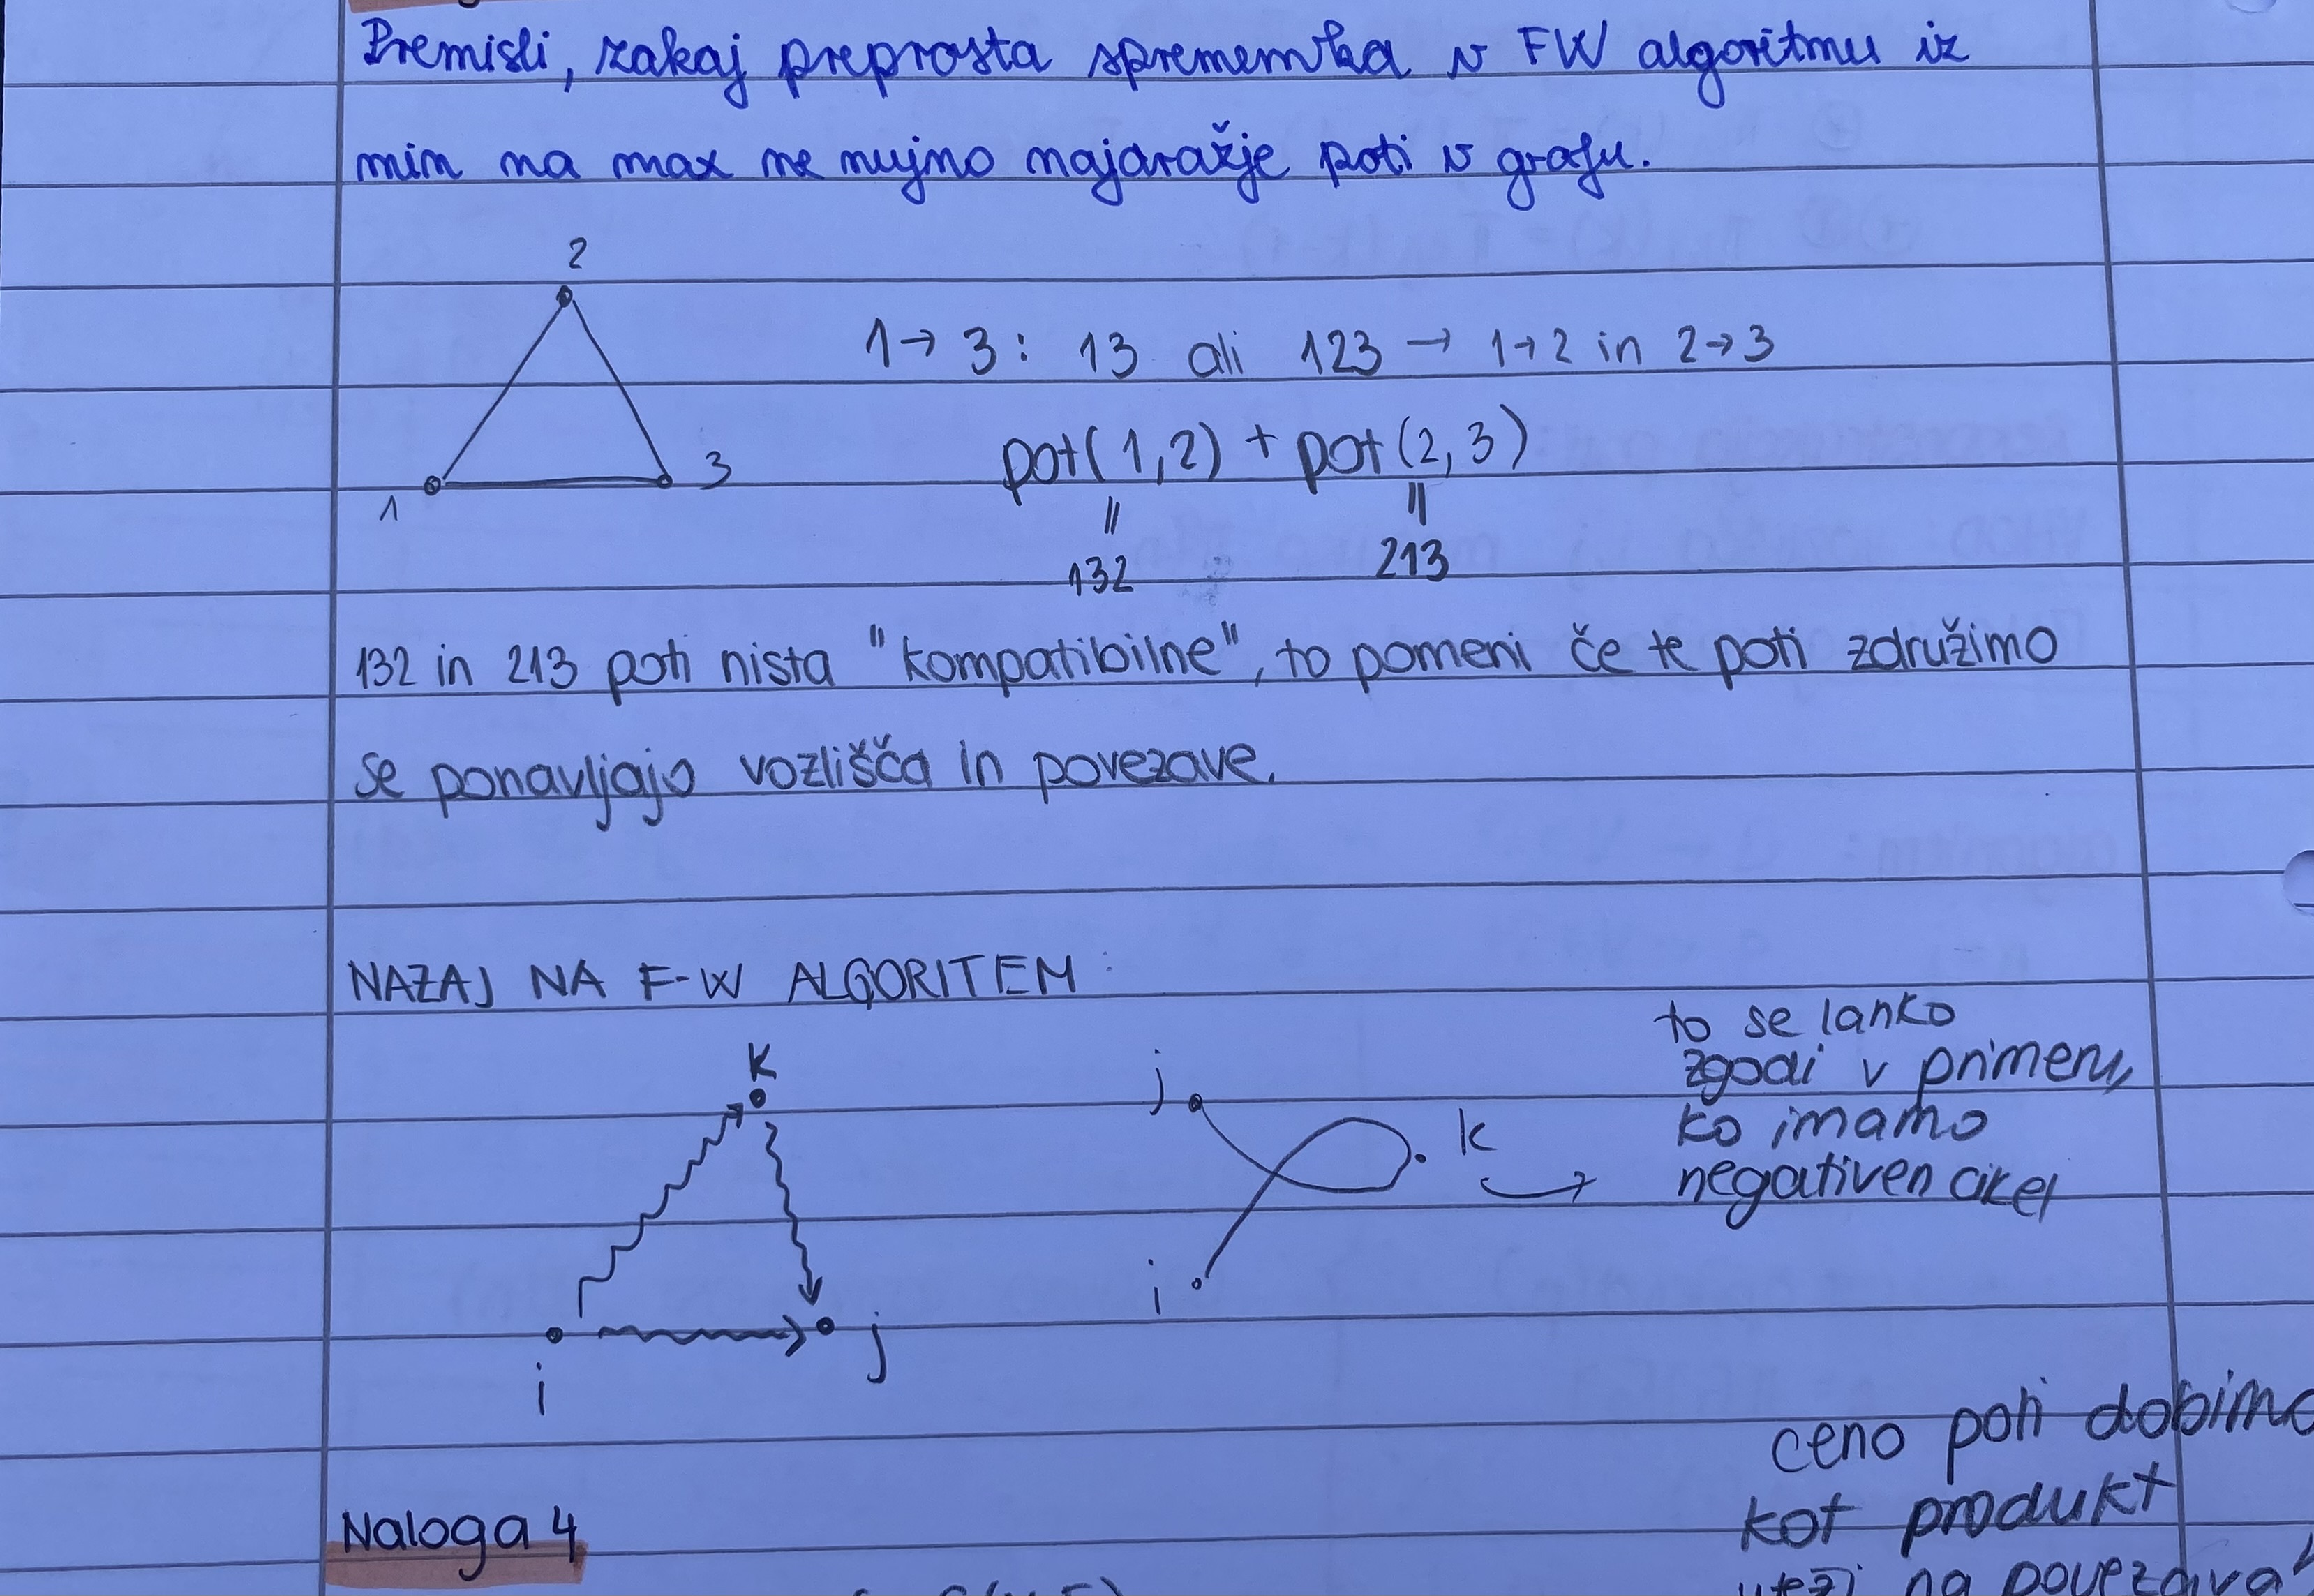 Premisli, zakaj preprosta sprememba v FW algoritmu iz
min na max ne nujno najdražje poti v grafu.
2
1 → 3 : 13 ali 123 → 1→2 in 2→3
pot(1,2) + pot(2,3)
1 3
= =
132 213
132 in 213 poti nista "kompatibilne", to pomeni če te poti združimo
se ponavljajo vozlišča in povezave.
NAZAJ NA F-W ALGORITEM :
k
i j
j
k
i
→ to se lahko
zgodi v primeru,
ko imamo
negativen cikel
ceno poti dobimo
kot produkt
uteži na povezava
Naloga 4